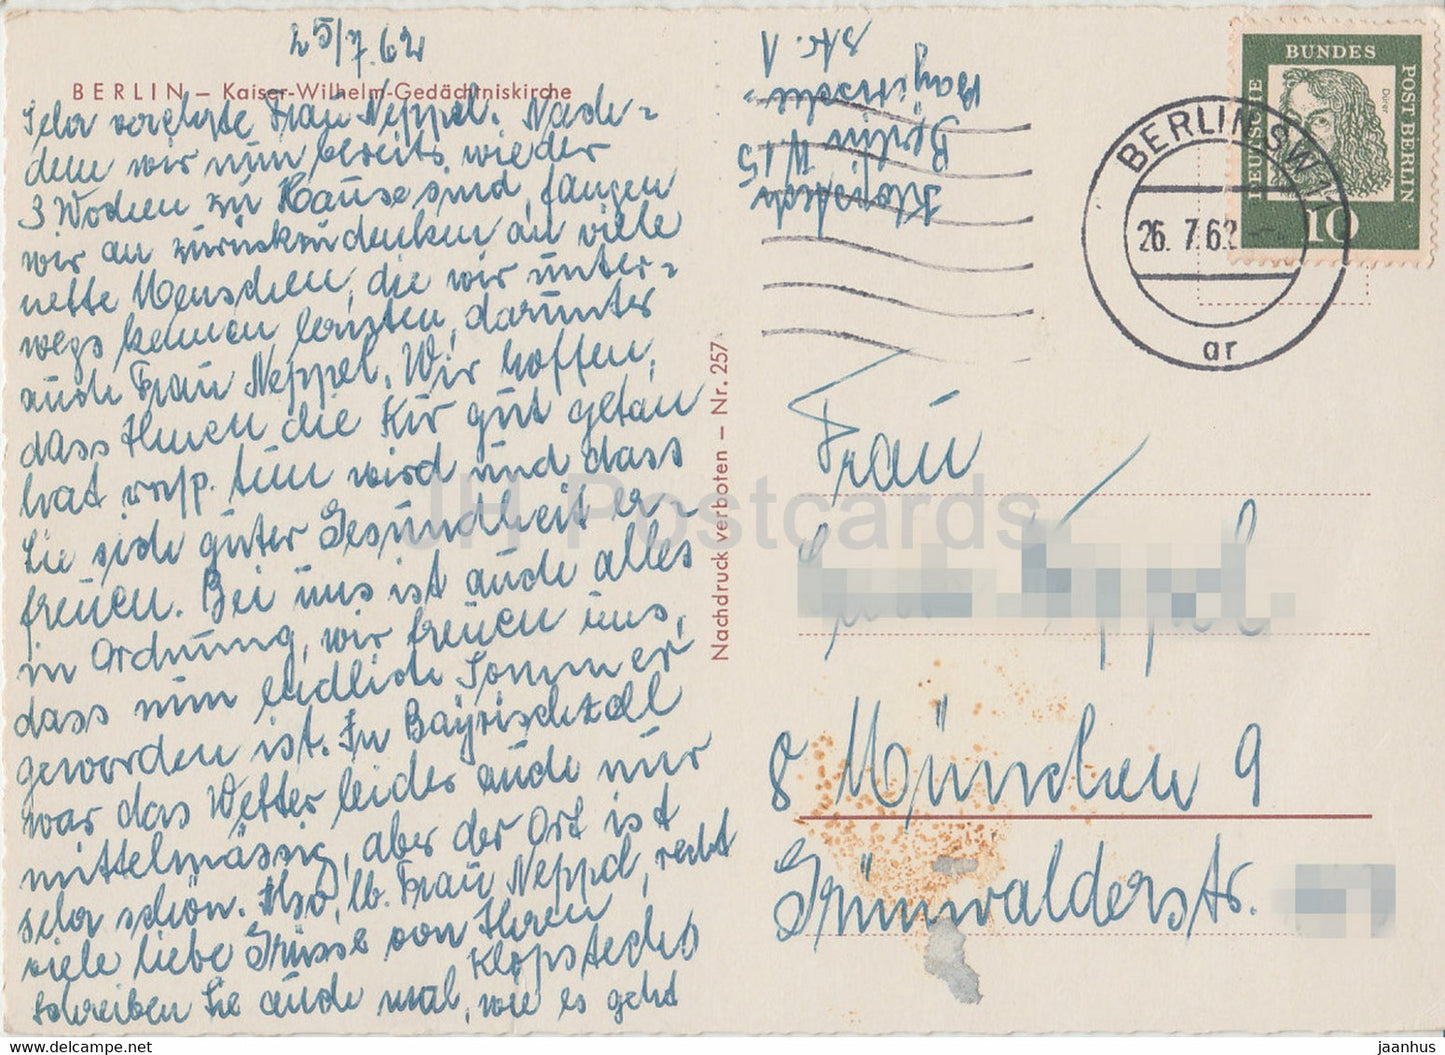 25/7.62
BERLIN – Kaiser-Wilhelm-Gedächtniskirche
Sehr verehrte Frau Neppel. Nach-
dem wir nun bereits wieder
3 Wochen zu Hause sind, fangen
wir an zurückzudenken an viele
nette Menschen, die wir unter-
wegs kennen lernten, darunter
auch Frau Neppel. Wir hoffen,
dass Ihnen die Kur gut getan
hat resp. tun wird und dass
Sie sich guter Gesundheit er-
freuen. Bei uns ist auch alles
in Ordnung, wir freuen uns,
dass nun endlich Sommer
geworden ist. In Bayrischzell
war das Wetter leider auch nur
mittelmässig, aber der Ort ist
sehr schön. Also, lb. Frau Neppel, recht
viele liebe Grüsse von Ihren
Klopstechs
schreiben Sie auch mal, wie es geht
Nachdruck verboten – Nr. 257
Klopstech
Berlin W 15
Bayrische-
str. 1
DEUTSCHE BUNDESPOST BERLIN
Dürer
10
BERLIN SW 11
26. 7. 62
ar
Frau
Neppel.
8 München 9
Grünwalderstr.
JH Postcards
www.hippostcard.com/store/jaanhue